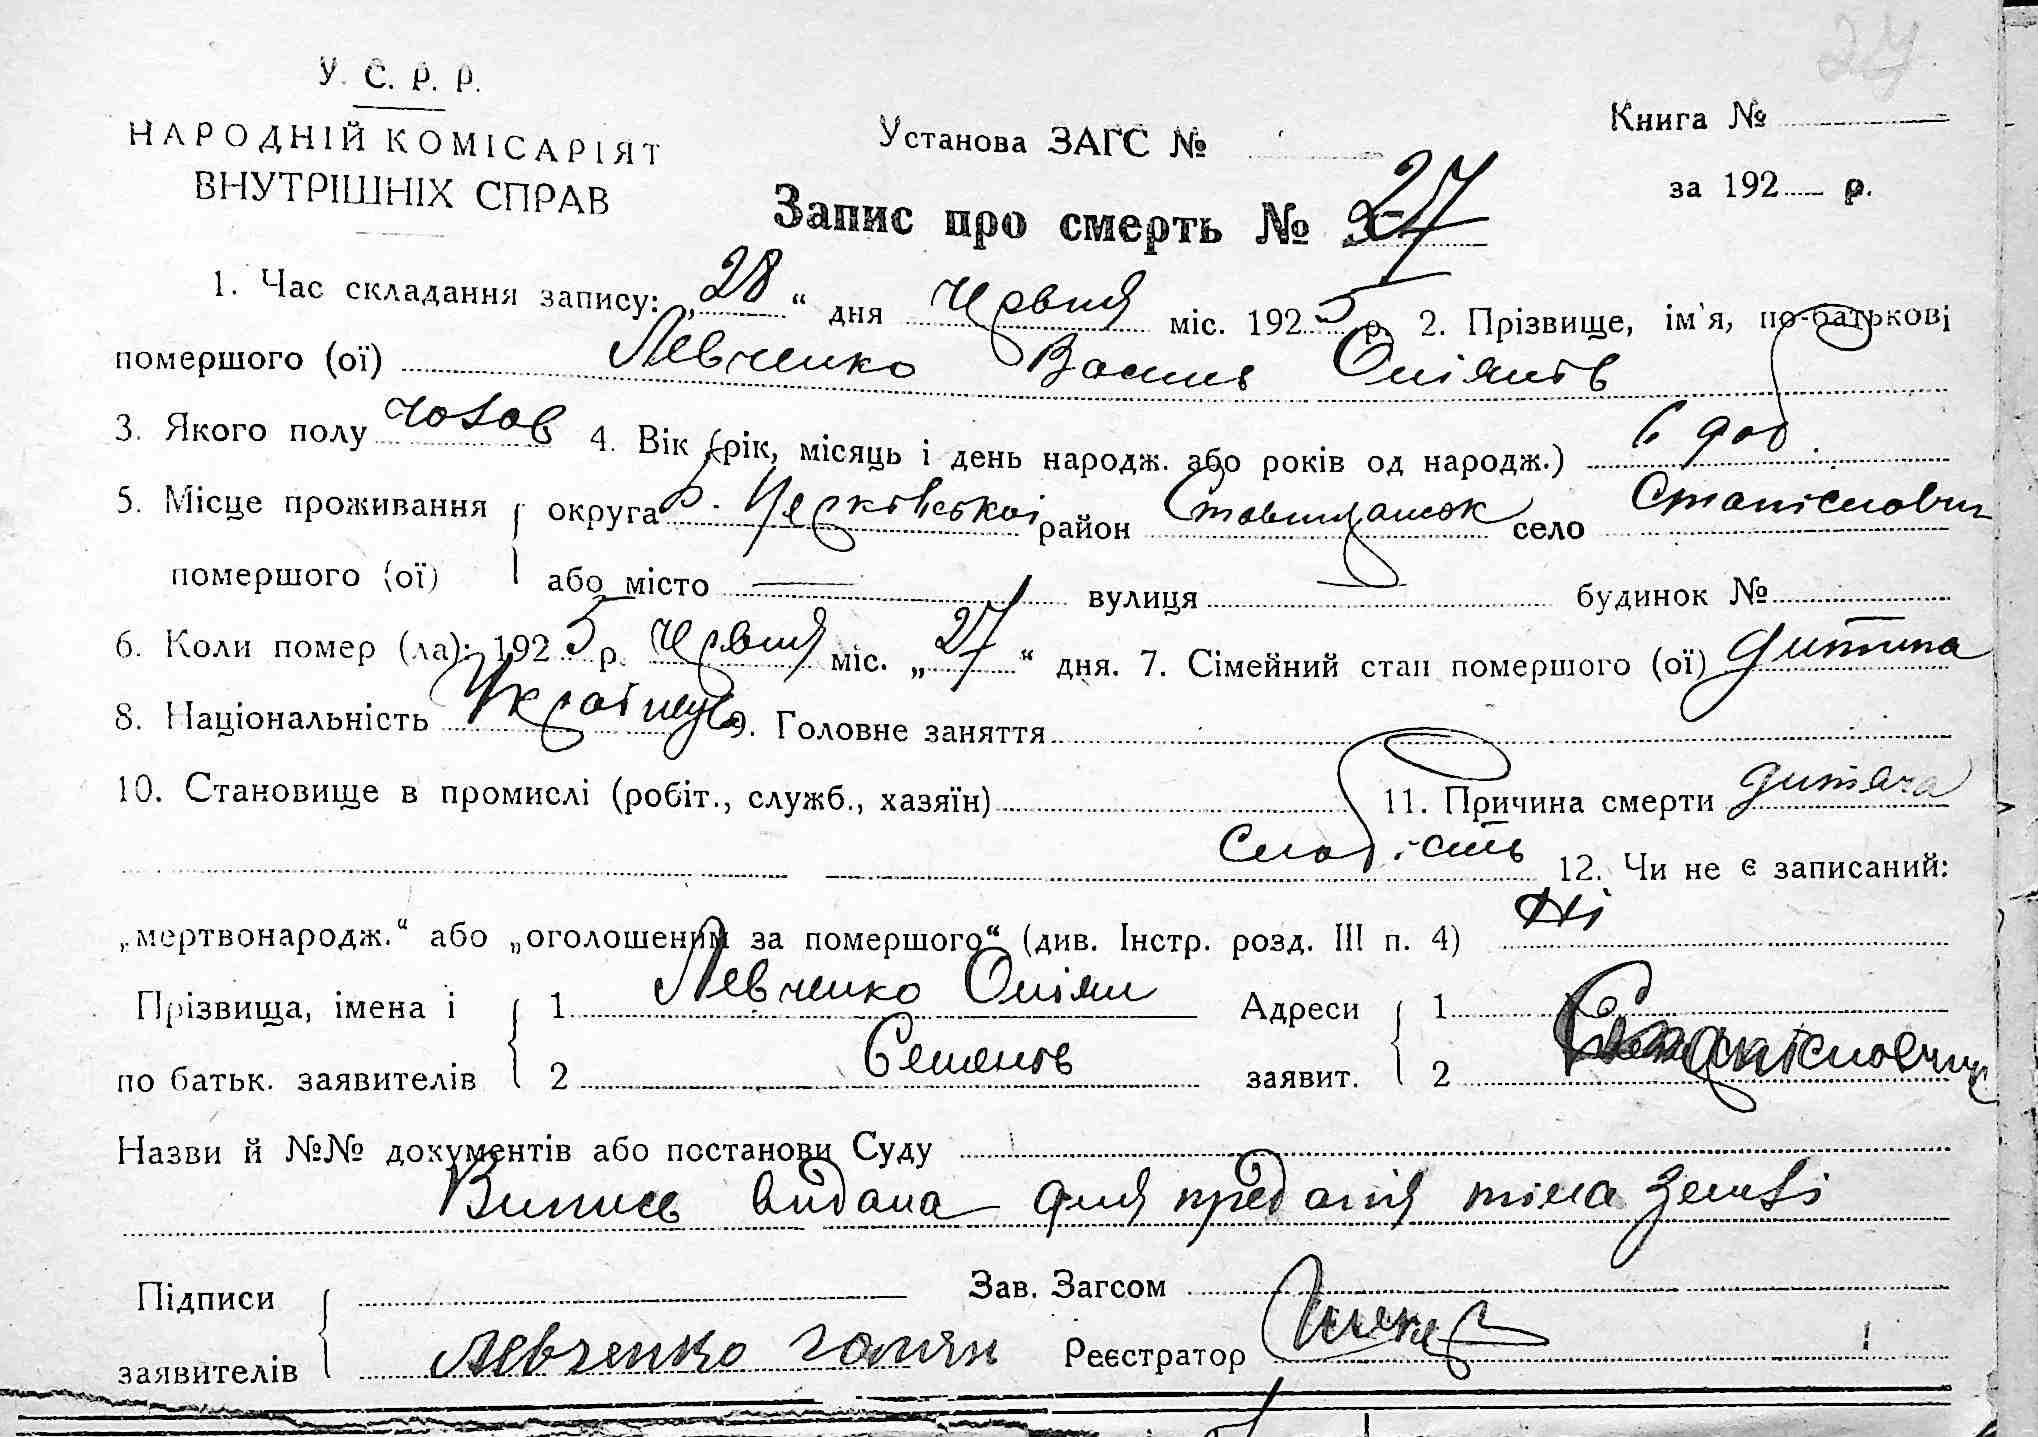 24
У. С. Р. Р.
НАРОДНІЙ КОМІСАРІЯТ
ВНУТРІШНІХ СПРАВ
Установа ЗАГС №
Книга №
за 192 р.
Запис про смерть № 27
1. Час складання запису: „28“ дня Червня міс. 1925 р. 2. Прізвище, ім'я, по-батькові
помершого (ої) Левченко Василь
3. Якого полу чолов 4. Вік (рік, місяць і день народж. або років од народж.) 6 доб
5. Місце проживання округа Б. Церківської район село
помершого (ої) або місто — вулиця — будинок №
6. Коли помер (ла): 1925 р. Червня міс. „27“ дня. 7. Сімейний стан помершого (ої) дитина
8. Національність 9. Головне заняття
10. Становище в промислі (робіт., служб., хазяїн) 11. Причина смерти дитяча
слабість 12. Чи не є записаний:
„мертвонародж.“ або „оголошеним за помершого“ (див. Інстр. розд. III п. 4) Ні
Прізвища, імена і 1 Левченко Адреси 1
по батьк. заявителів 2 Семенов заявит. 2
Назви й №№ документів або постанови Суду
Випись видана для преданія тіла землі
Підписи Зав. Загсом
заявителів Левченко Реєстратор